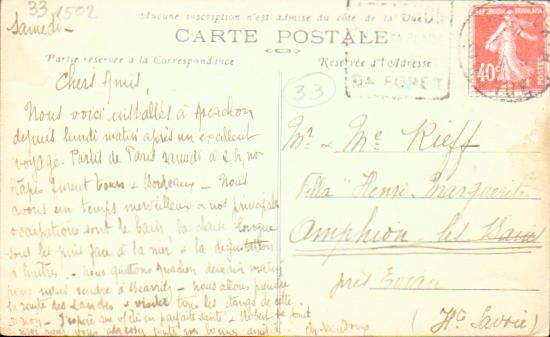 33 1502
Samedi –
Aucune inscription n'est admise du côté de la Vue
CARTE POSTALE
Partie réservée à la Correspondance
Réservée à l'Adresse
ARCACHON
SA PLAGE
Sa FORET
REPUBLIQUE FRANÇAISE
40c
33
Chers Amis,
Nous voici installés à Arcachon
depuis lundi matin après un excellent
voyage. Partis de Paris samedi à 2 h, nos
étapes furent Tours & Bordeaux – Nous
avons un temps merveilleux & nos principales
occupations sont le bain, la chaise longue
sous les pins face à la mer & la dégustation
d'huîtres – Nous quittons Arcachon demain matin
pour nous rendre à Biarritz – nous allons prendre
la route des Landes & visiter tous les étangs de cette
région – J'espère que est en parfaite santé & Robert
vous tous un bonne
Mr & Me Rieff
Villa "Henri-Marguerite"
Amphion-les-Bains
près Evian
(Hte Savoie)